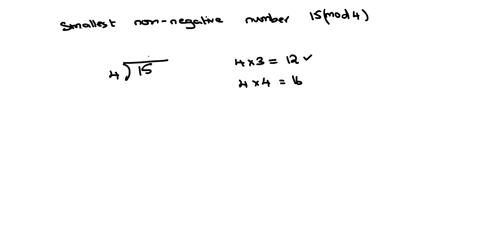 Smallest non-negative number 15(mod 4)
4 x 3 = 12 ✓
4 ) 15
4 x 4 = 16